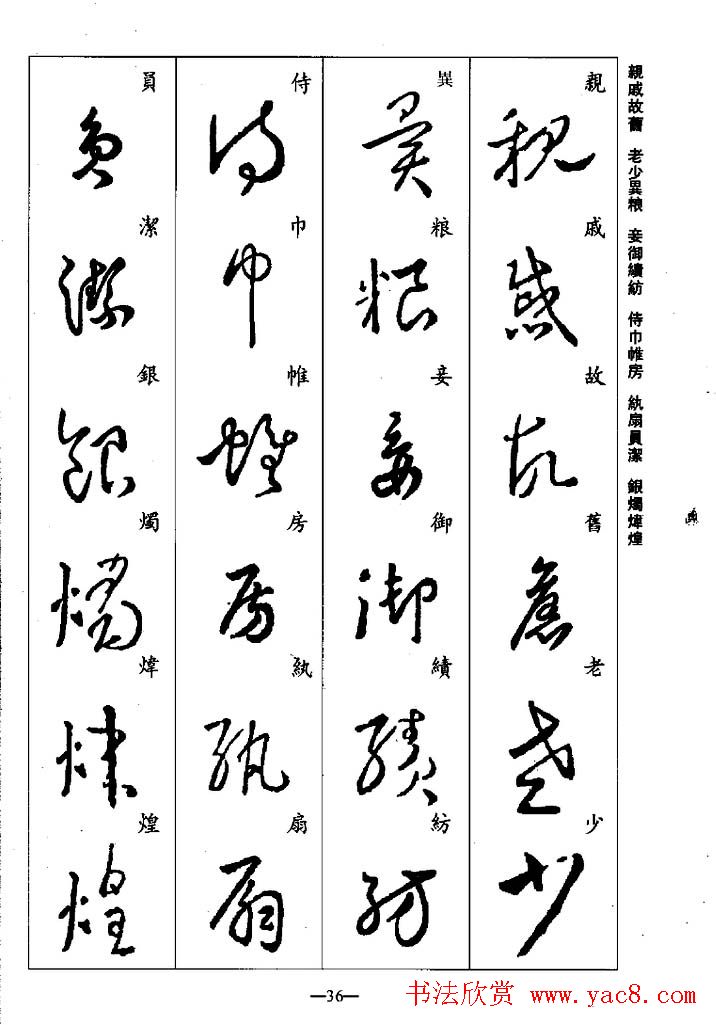 親戚故舊 老少異粮 妾御績紡 侍巾帷房 紈扇員潔 銀燭煒煌
親戚故舊老少
異粮妾御績紡
侍巾帷房紈扇
員潔銀燭煒煌
—36—
书法欣赏 www.yac8.com